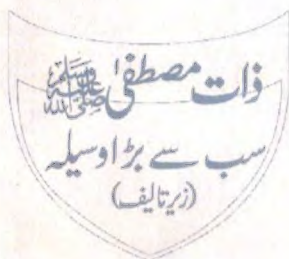 ذات مصطفیٰ ﷺ
سب سے بڑا وسیلہ
(زیر تالیف)